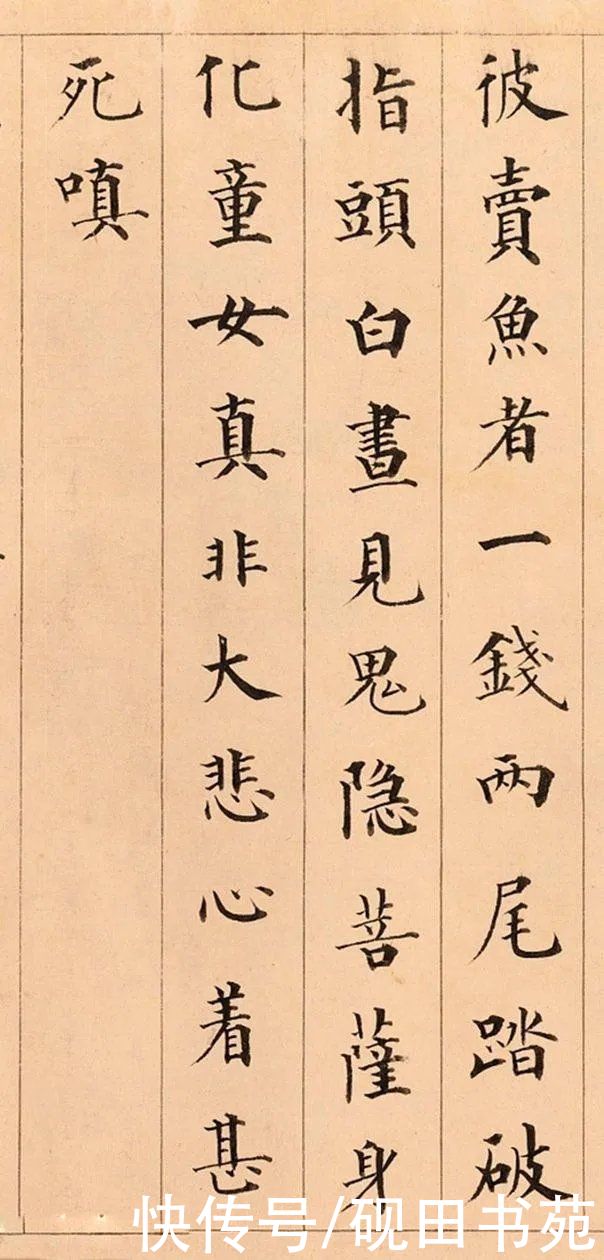 彼賣魚者一錢兩尾踏破
指頭白晝見鬼隐菩薩身
化童女真非大悲心着甚
死嗔
快传号/砚田书苑